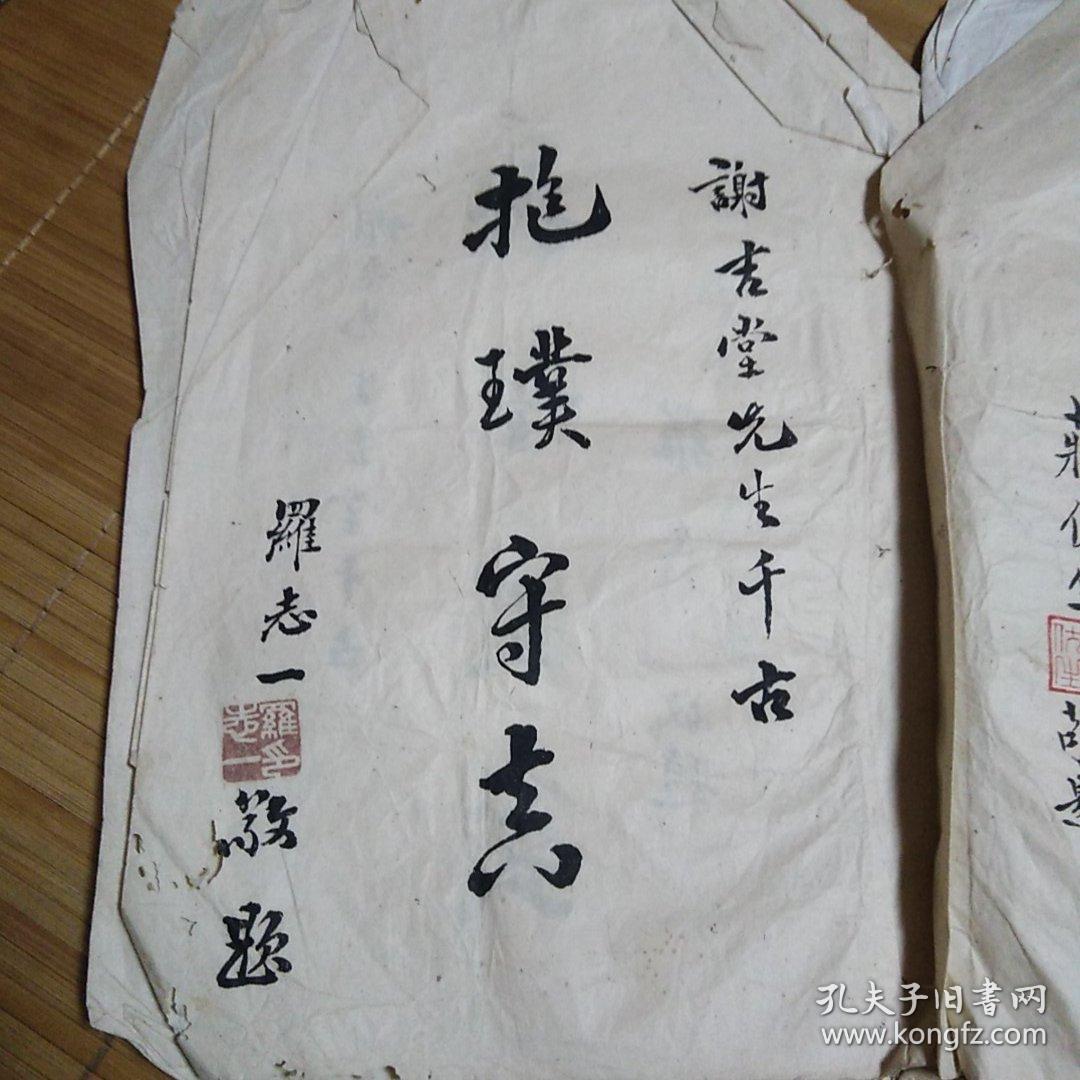 謝吉堂先生千古
抱璞守真
羅志一
羅志一印
敬題
蔣佐生
佐生
敬題
孔夫子旧書网
www.kongfz.com